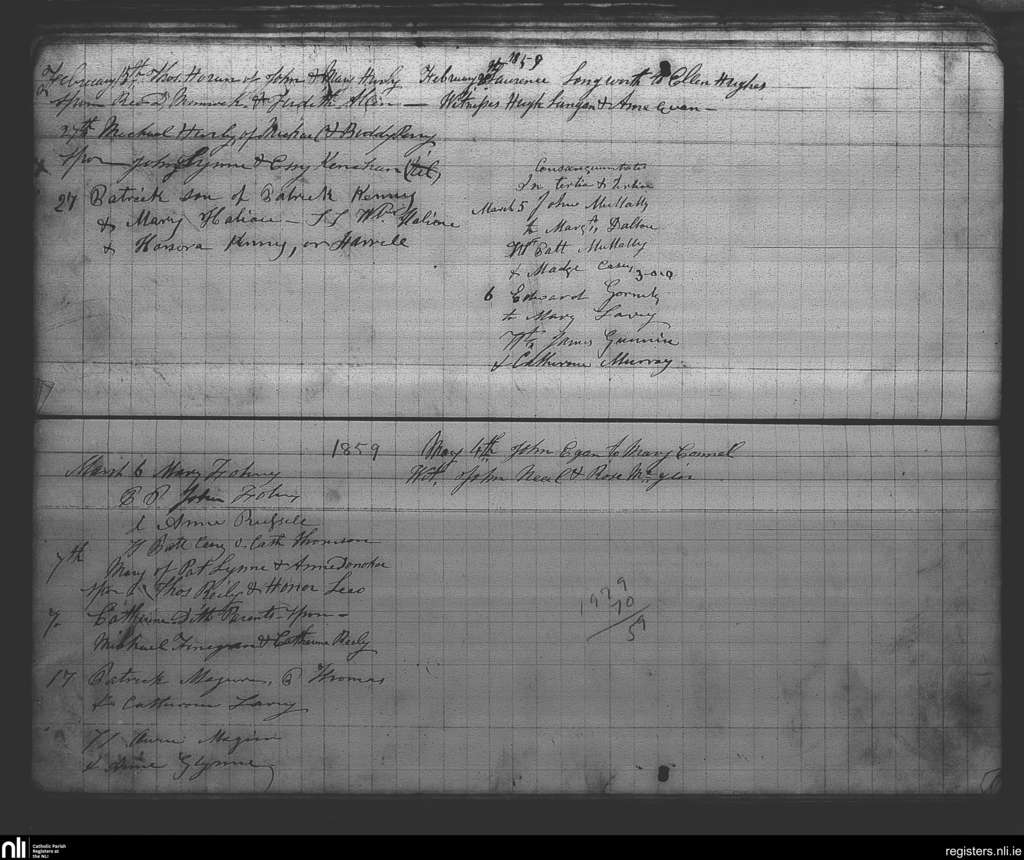 1859
February 15th Thos. Horan of John & Mary Hurly
spon Rev D & Judith Allen
27th Michael Hurly of Michael & Biddy
spor John Glynne & Essy
27 Patrick son of Patrick Kenny
& Mary Halion - SS Wm Halione
& Honora Kenny, or Farrele
February Laurence Longworth to Ellen Hughes
Witnesses Hugh Langan & Anne Egan
Consanguinitate
In tertio & tertio
March 5 John Mullally
to Margt. Dalton
Wt Patt Mullally
& Madge Casey 3-0-0
6 Edward
to Mary Lavey
Wts James Gunnin
& Catherine Murray
1859
March 6 Mary
P P John
& Anne Russele
SS Patt Casy & Cath Thomson
7th Mary of Pat Glynne & Anne Donohoe
spon Thos Reily & Honor Leeo
7. Catherine Ditto Parents - spon -
Michael Finegan & Catherine Reely
17 Patrick Maguire, P Thomas
& Catherine Lavey
SS Anne
& Anne Glynne
May 4th John Egan to Mary Connel
Wit. John Neel & Rose
1929
70
59
nli
Catholic Parish
Registers at
the NLI
registers.nli.ie